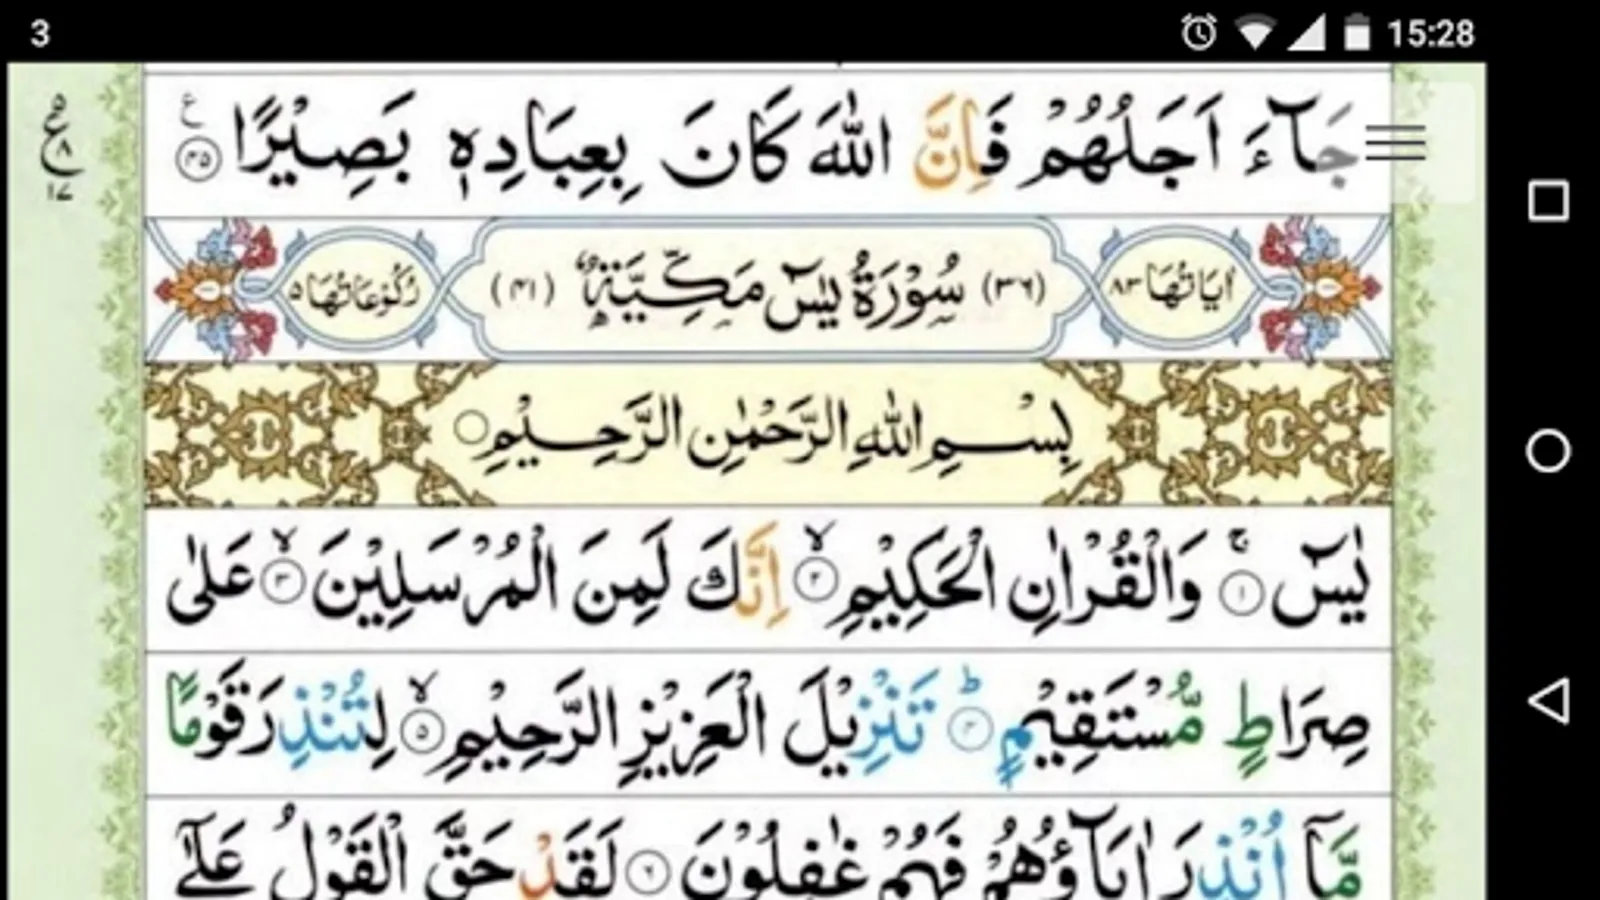 3 15:28
جَآءَ اَجَلُهُمْ فَاِنَّ اللّٰهَ كَانَ بِعِبَادِهٖ بَصِيْرًا ﴿۴۵﴾ ع
ع ۵ ۸ ۱۷
اٰيَاتُهَا ۸۳ (۳۶) سُوْرَةُ يٰسٓ مَكِّيَّةٌ (۴۱) رُكُوْعَاتُهَا ۵
بِسْمِ اللّٰهِ الرَّحْمٰنِ الرَّحِيْمِ
يٰسٓ ﴿۱﴾ۚ وَالْقُرْاٰنِ الْحَكِيْمِ ﴿۲﴾ۙ اِنَّكَ لَمِنَ الْمُرْسَلِيْنَ ﴿۳﴾ۙ عَلٰى
صِرَاطٍ مُّسْتَقِيْمٍ ﴿۴﴾ؕ تَنْزِيْلَ الْعَزِيْزِ الرَّحِيْمِ ﴿۵﴾ۙ لِتُنْذِرَ قَوْمًا
مَّآ اُنْذِرَ اٰبَآؤُهُمْ فَهُمْ غٰفِلُوْنَ ﴿۶﴾ لَقَدْ حَقَّ الْقَوْلُ عَلٰٓى